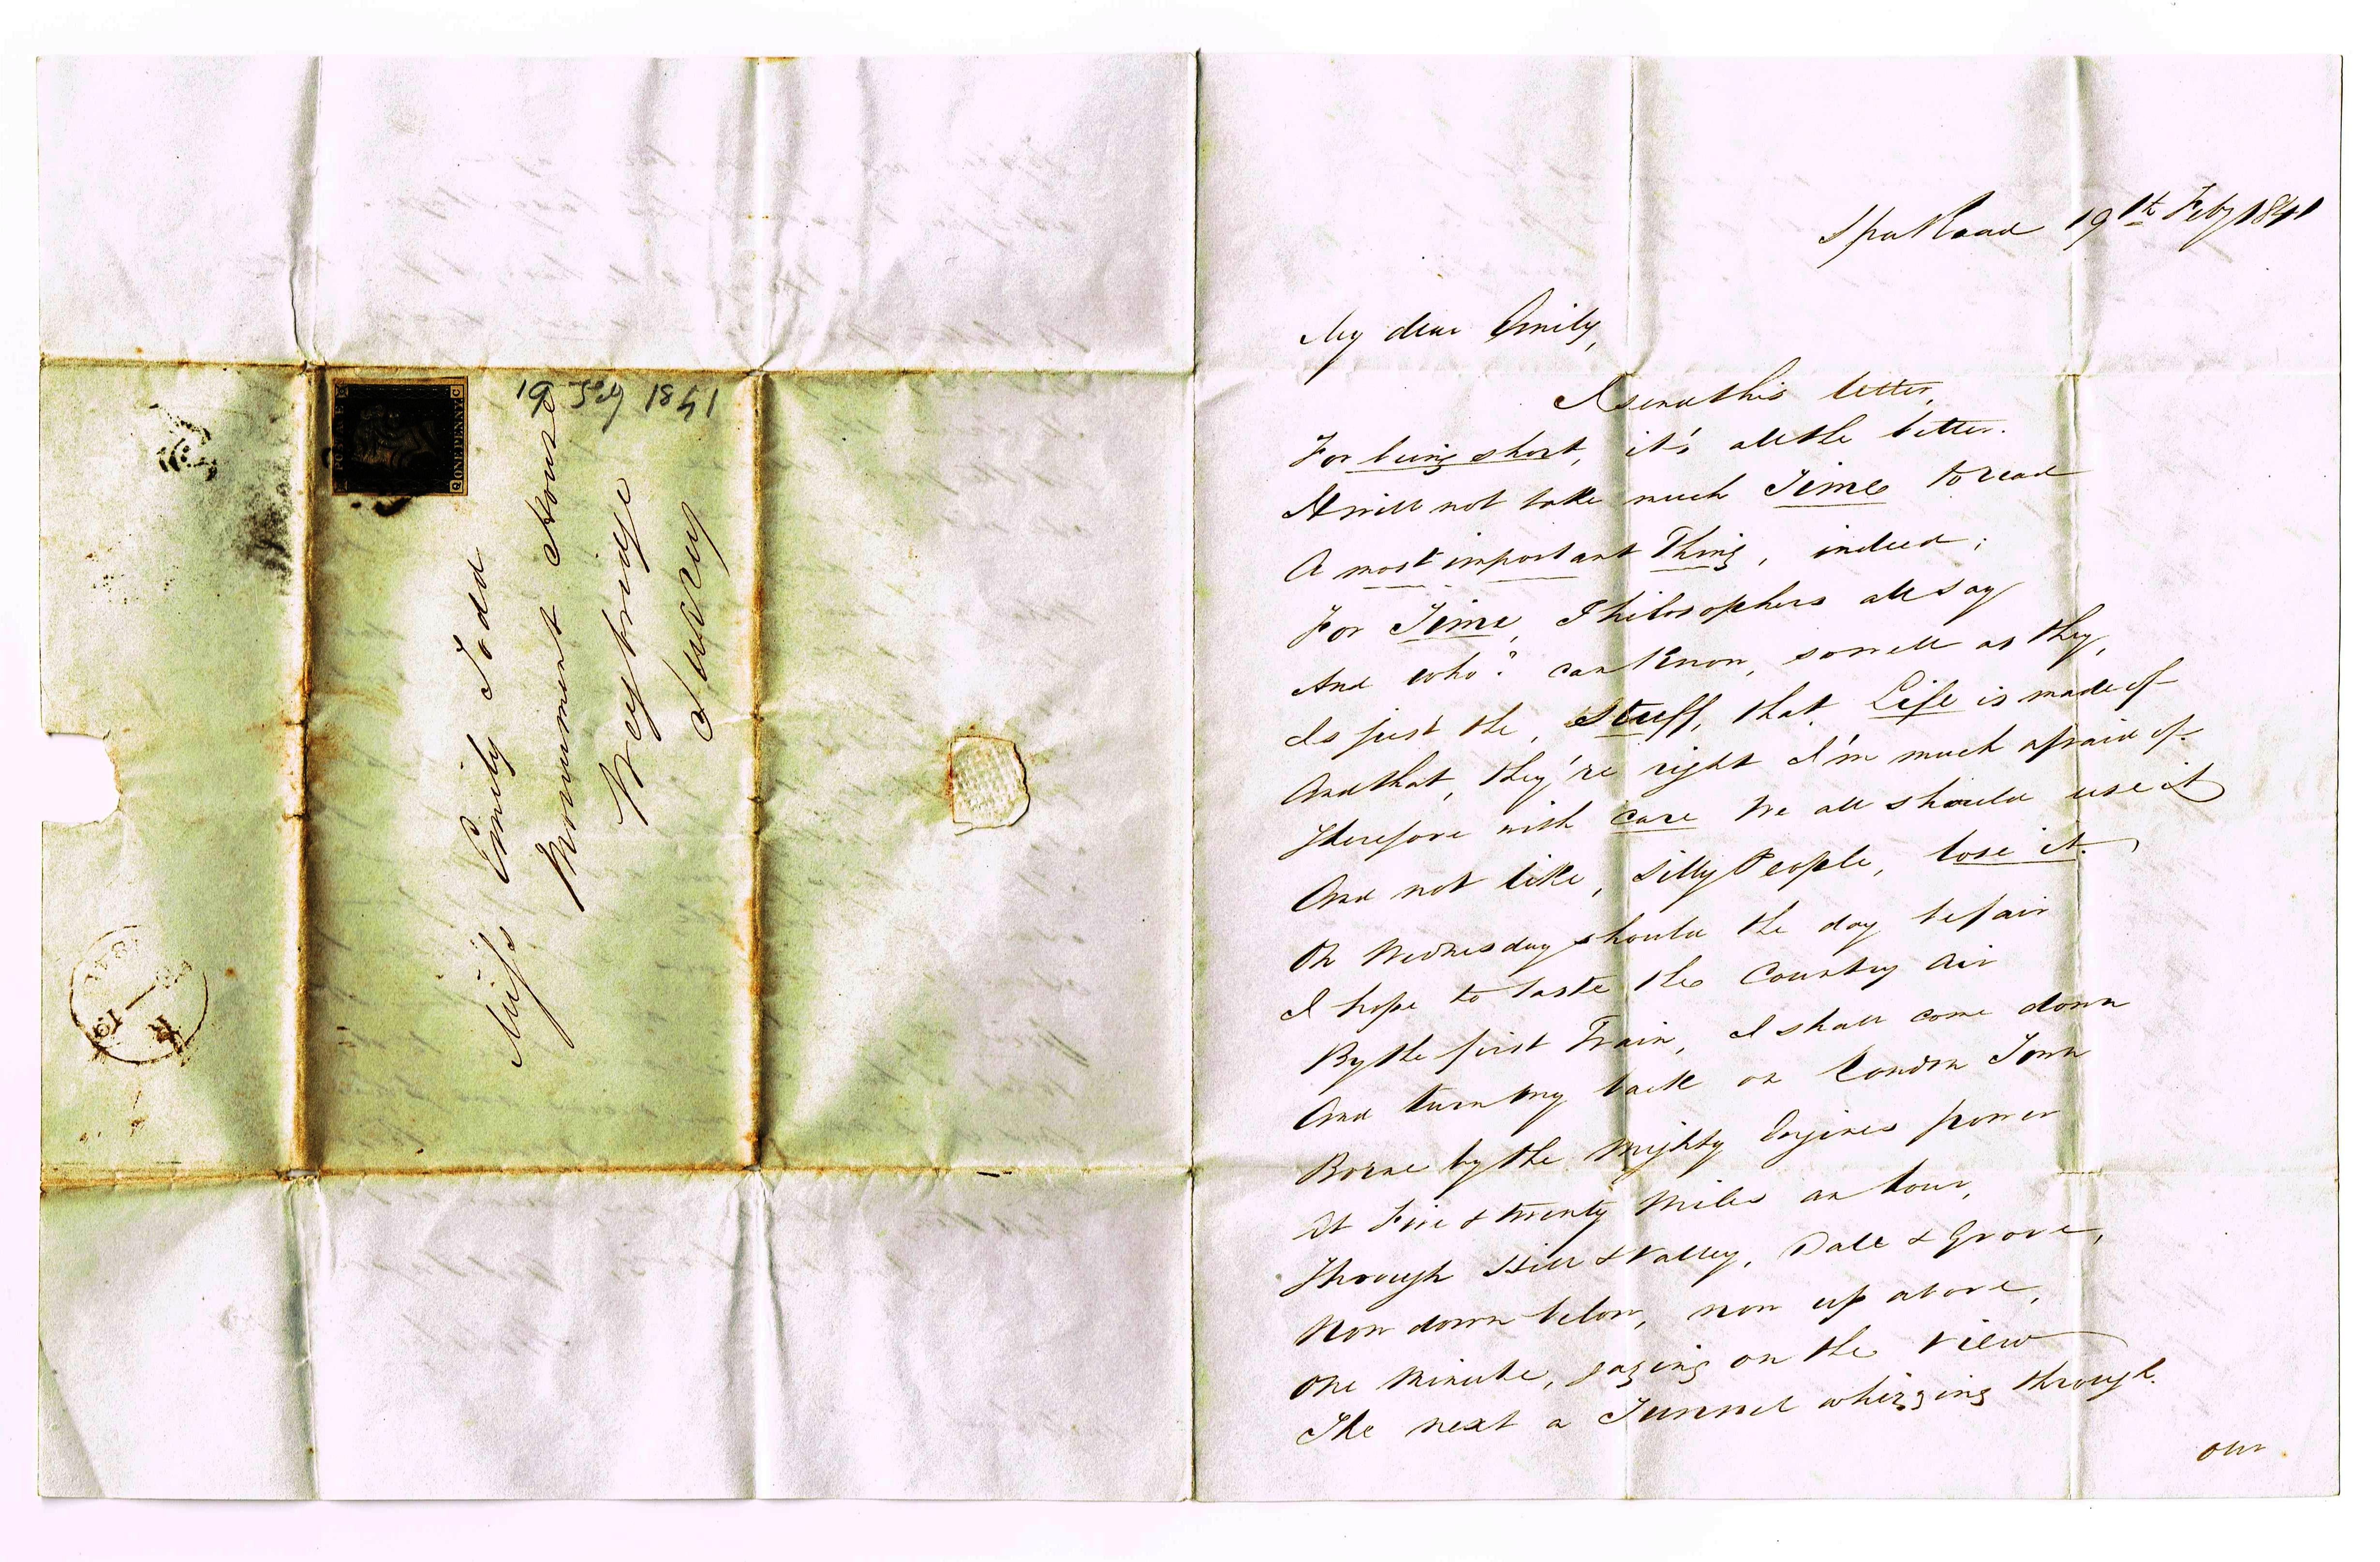 19 Feby 1841
POSTAGE
ONE PENNY
Q C
Miss Emily Todd
Monument House
Weybridge
Surrey
1841
19
Spa Road 19th Feby 1841
My dear Emily,
I send this letter,
For being short, it's all the better.
It will not take much Time to read
A most important Thing, indeed;
For Time, Philosophers all say
And who? can know, so well as they,
Is just the, Stuff, that Life is made of
And that, they're right I'm much afraid of
Therefore with Care We all should use it
And not like, Silly People, lose it.
On Wednesday should the day be fair
I hope to taste the Country Air
By the first Train, I shall come down
And turn my back on London Town
Borne by the mighty Engines power
At Five & twenty Miles an hour,
Through Hill & Valley, Dale & Grove,
Now down below, now up above,
One Minute, gazing on the View
The next a Tunnel whizzing through.
our